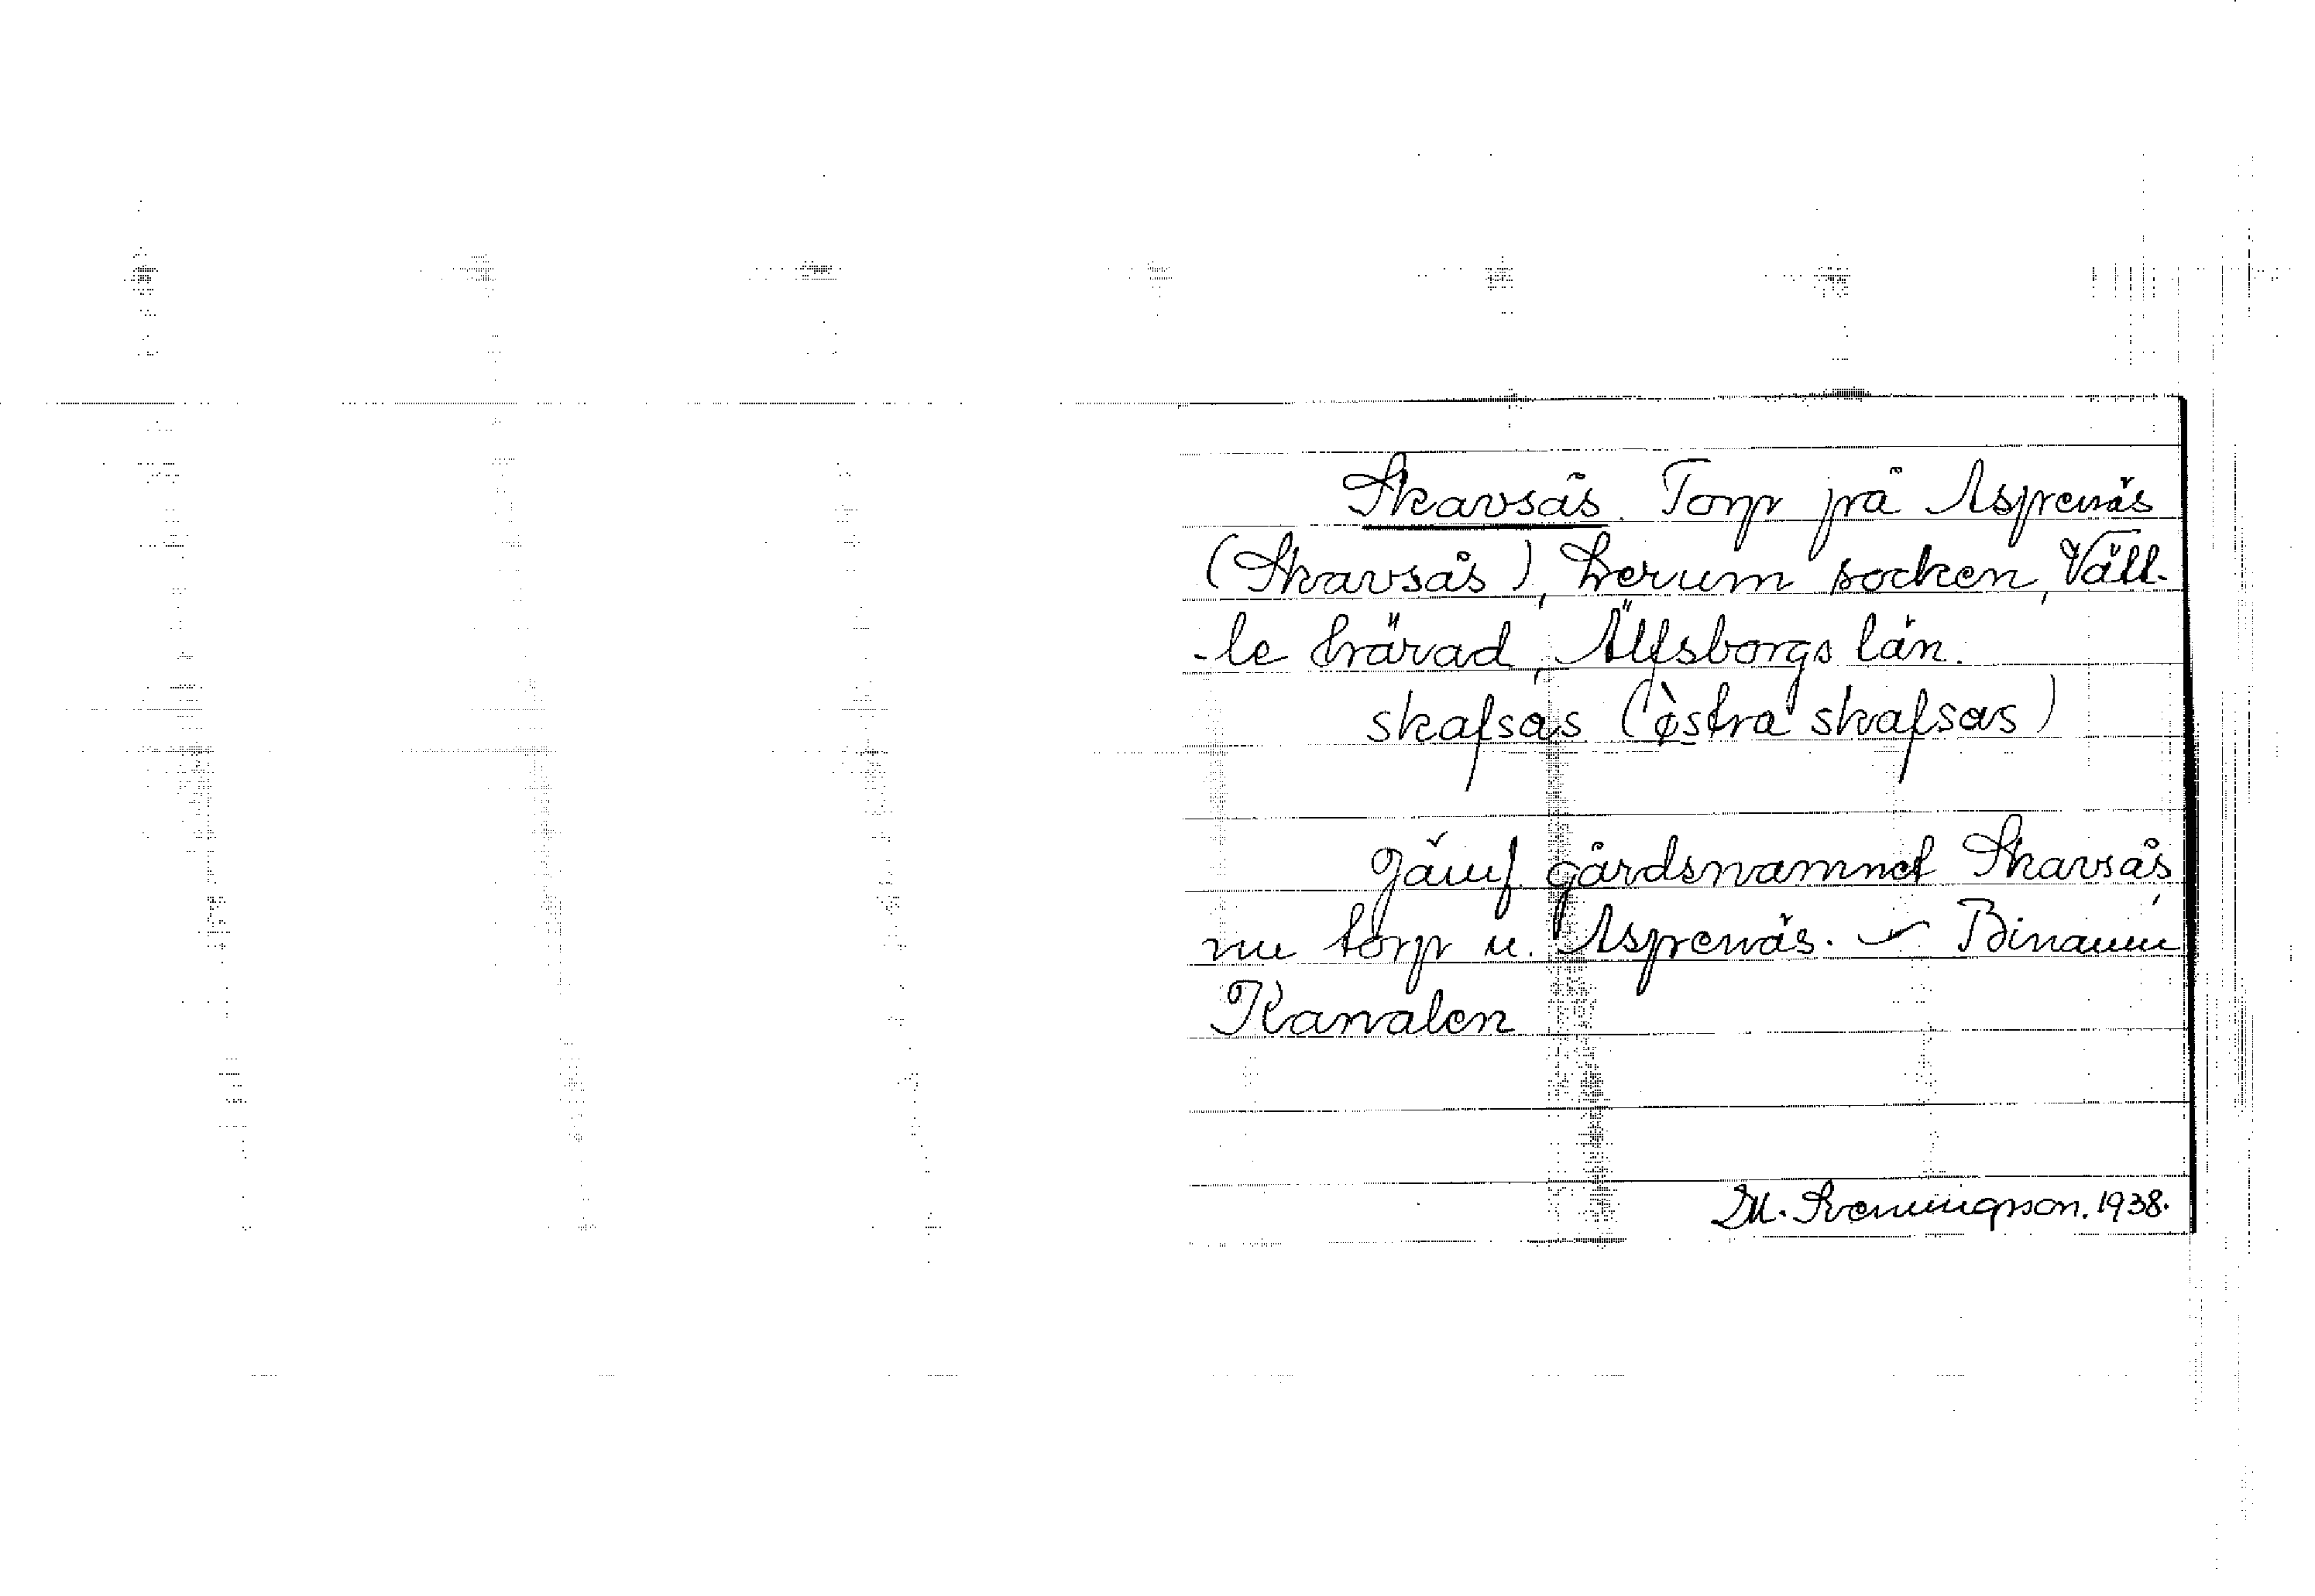 Skavsås. Torp på Aspenäs
(Skavsås), Lerum socken, Vätt-
-le härad, Älfsborgs län.
skafsås (östra skafsås)
Jämf. gårdsnamnet Skavsås,
nu torp u. Aspenäs. – Binamn
Kanalen
M. Svenningson. 1938.